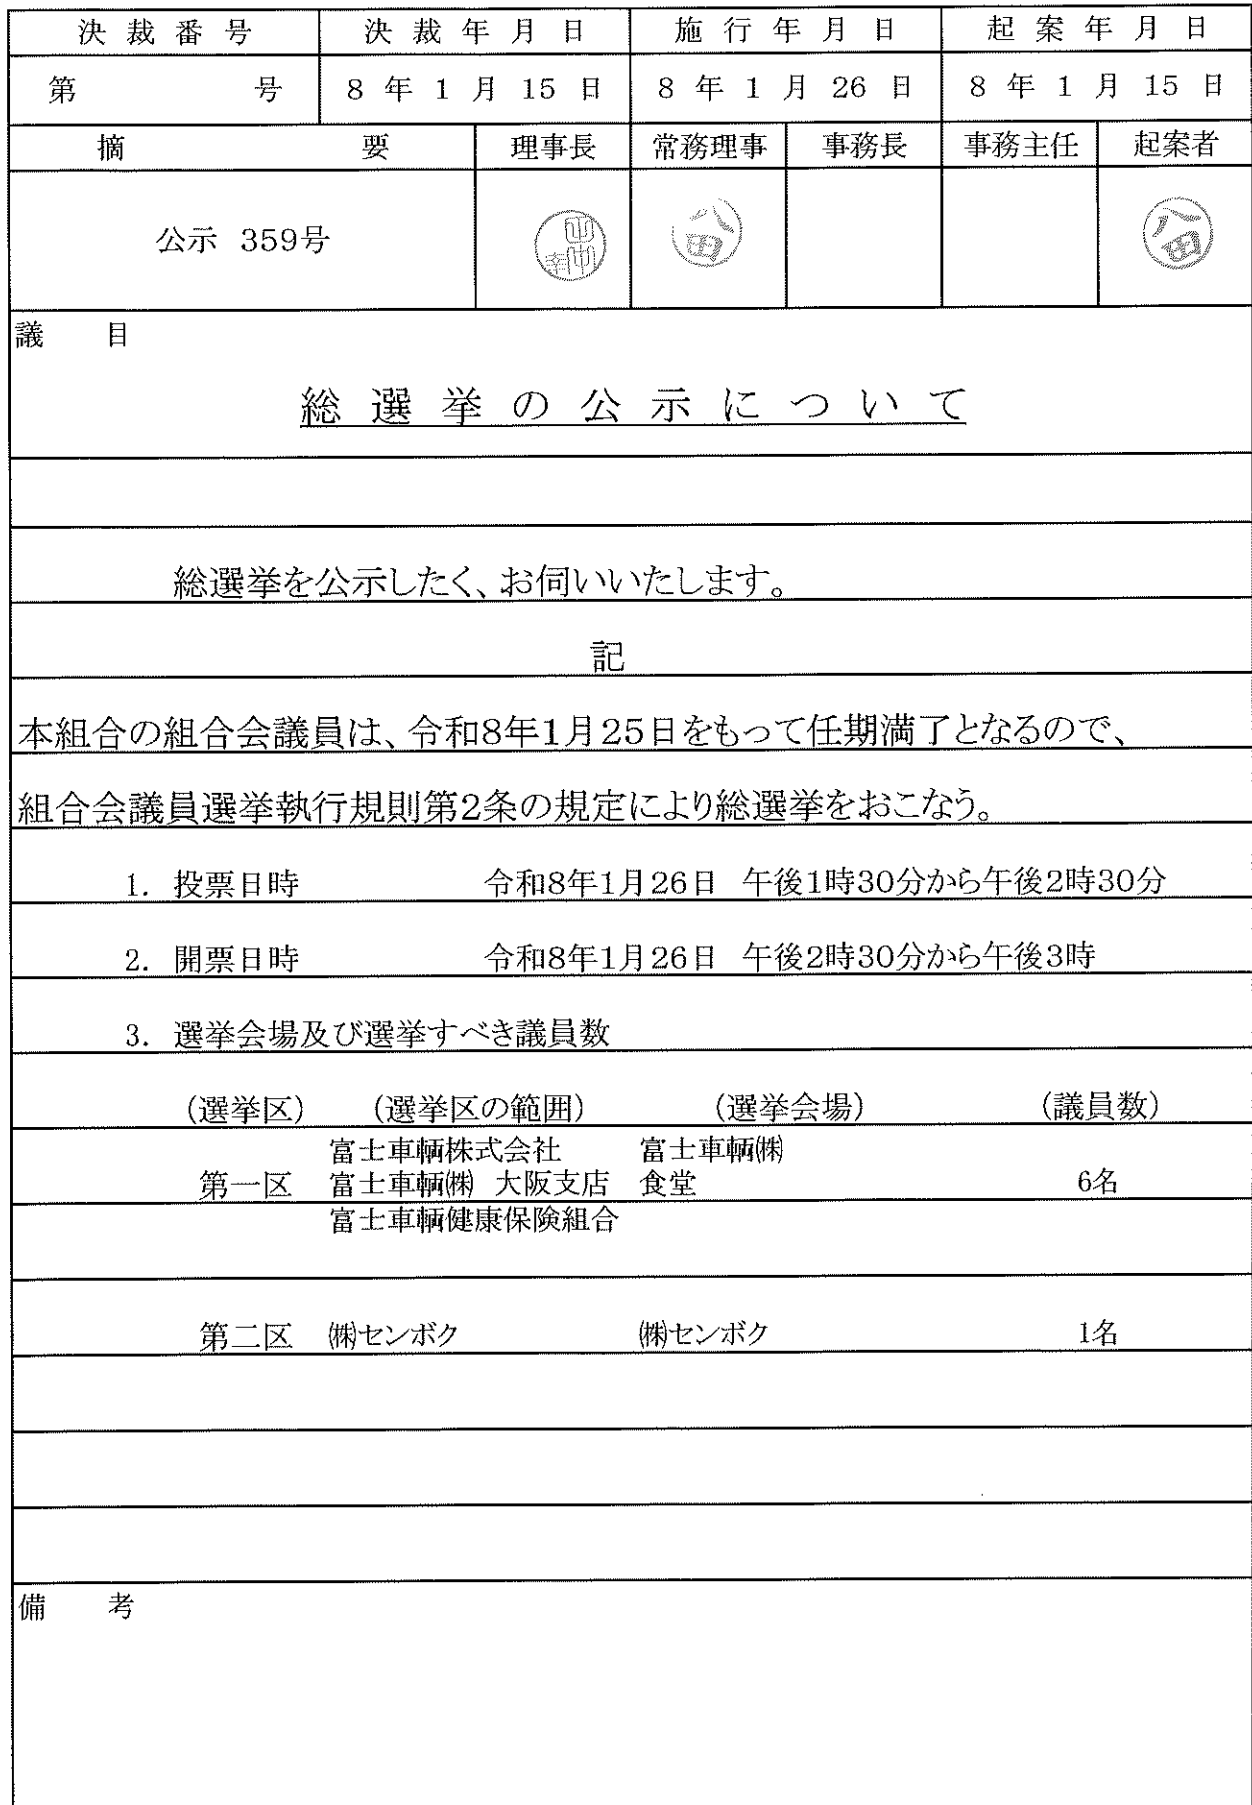 決裁番号 決裁年月日 施行年月日 起案年月日
第 号 8年1月15日 8年1月26日 8年1月15日
摘要 理事長 常務理事 事務長 事務主任 起案者
公示 359号 八田 八田
議 目
総選挙の公示について
総選挙を公示したく、お伺いいたします。
記
本組合の組合会議員は、令和8年1月25日をもって任期満了となるので、
組合会議員選挙執行規則第2条の規定により総選挙をおこなう。
1. 投票日時 令和8年1月26日 午後1時30分から午後2時30分
2. 開票日時 令和8年1月26日 午後2時30分から午後3時
3. 選挙会場及び選挙すべき議員数
(選挙区) (選挙区の範囲) (選挙会場) (議員数)
富士車輌株式会社 富士車輌㈱
第一区 富士車輌㈱ 大阪支店 食堂 6名
富士車輌健康保険組合
第二区 ㈱センボク ㈱センボク 1名
備 考